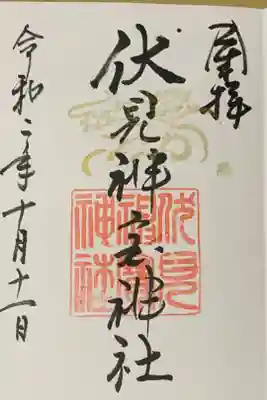 伏見神宝神社
伏見
神寶
神社
令和二年十月十一日